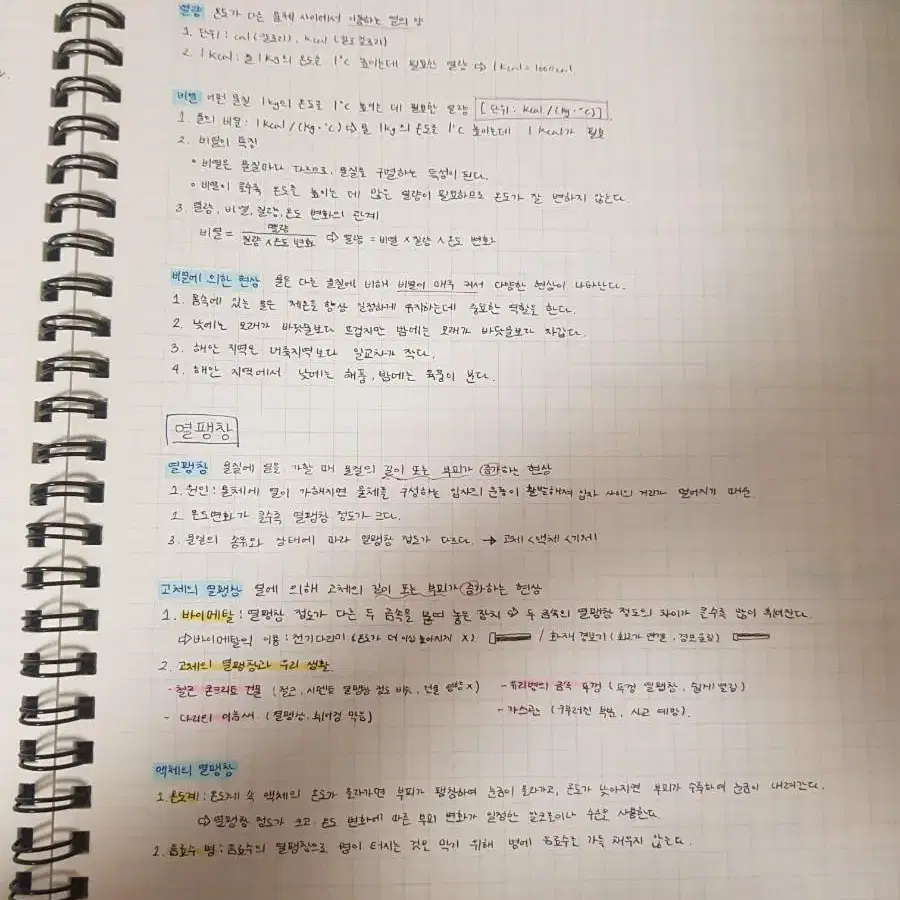 열량 온도가 다른 물체 사이에서 이동하는 열의 양
1. 단위 : cal (칼로리), kcal (킬로칼로리)
2. 1kcal : 물 1kg의 온도를 1°C 높이는데 필요한 열량 ⇨ 1kcal = 1000cal
비열 어떤 물질 1kg의 온도를 1°C 높이는 데 필요한 열량 [단위 : kcal/(kg·°C)]
1. 물의 비열 : 1kcal/(kg·°C) ⇨ 물 1kg의 온도를 1°C 높이는데 1kcal가 필요
2. 비열의 특징
• 비열은 물질마다 다르므로, 물질을 구별하는 특성이 된다.
• 비열이 클수록 온도를 높이는 데 많은 열량이 필요하므로 온도가 잘 변하지 않는다
3. 열량, 비열, 질량, 온도 변화의 관계
비열 = 열량 / 질량 × 온도 변화 ⇨ 열량 = 비열 × 질량 × 온도 변화
비열에 의한 현상 물은 다른 물질에 비해 비열이 매우 커서 다양한 현상이 나타난다.
1. 몸속에 있는 물은 체온을 항상 일정하게 유지하는데 중요한 역할을 한다.
2. 낮에는 모래가 바닷물보다 뜨겁지만 밤에는 모래가 바닷물보다 차갑다.
3. 해안 지역은 내륙지역보다 일교차가 작다.
4. 해안 지역에서 낮에는 해풍, 밤에는 육풍이 분다.
열팽창
열팽창 물질에 열을 가할 때 물질의 길이 또는 부피가 증가하는 현상
1. 원인 : 물체에 열이 가해지면 물체를 구성하는 입자의 운동이 활발해져 입자 사이의 거리가 멀어지기 때문
2. 온도변화가 클수록 열팽창 정도가 크다.
3. 물질의 종류와 상태에 따라 열팽창 정도가 다르다. → 고체 < 액체 < 기체
고체의 열팽창 열에 의해 고체의 길이 또는 부피가 증가하는 현상
1. 바이메탈 : 열팽창 정도가 다른 두 금속을 붙여 놓은 장치 ⇨ 두 금속의 열팽창 정도의 차이가 클수록 많이 휘어진다.
⇨ 바이메탈의 이용 : 전기다리미 (온도가 더 이상 높아지지 X) / 화재 경보기 (회로가 연결, 경보울림)
2. 고체의 열팽창과 우리 생활
- 철근 콘크리트 건물 (철근, 시멘트 열팽창 정도 비슷, 건물 영향 X) - 유리병의 금속 뚜껑 (뚜껑 열팽창, 쉽게 열림)
- 다리의 이음새 (열팽창, 휘어짐 막음) - 가스관 (구부러진 부분, 사고 예방)
액체의 열팽창
1. 온도계 : 온도계 속 액체의 온도가 올라가면 부피가 팽창하여 눈금이 올라가고, 온도가 낮아지면 부피가 수축하여 눈금이 내려간다.
⇨ 열팽창 정도가 크고, 온도 변화에 따른 부피 변화가 일정한 알코올이나 수은을 사용한다.
2. 음료수 병 : 음료수의 열팽창으로 병이 터지는 것을 막기 위해 병에 음료수를 가득 채우지 않는다.